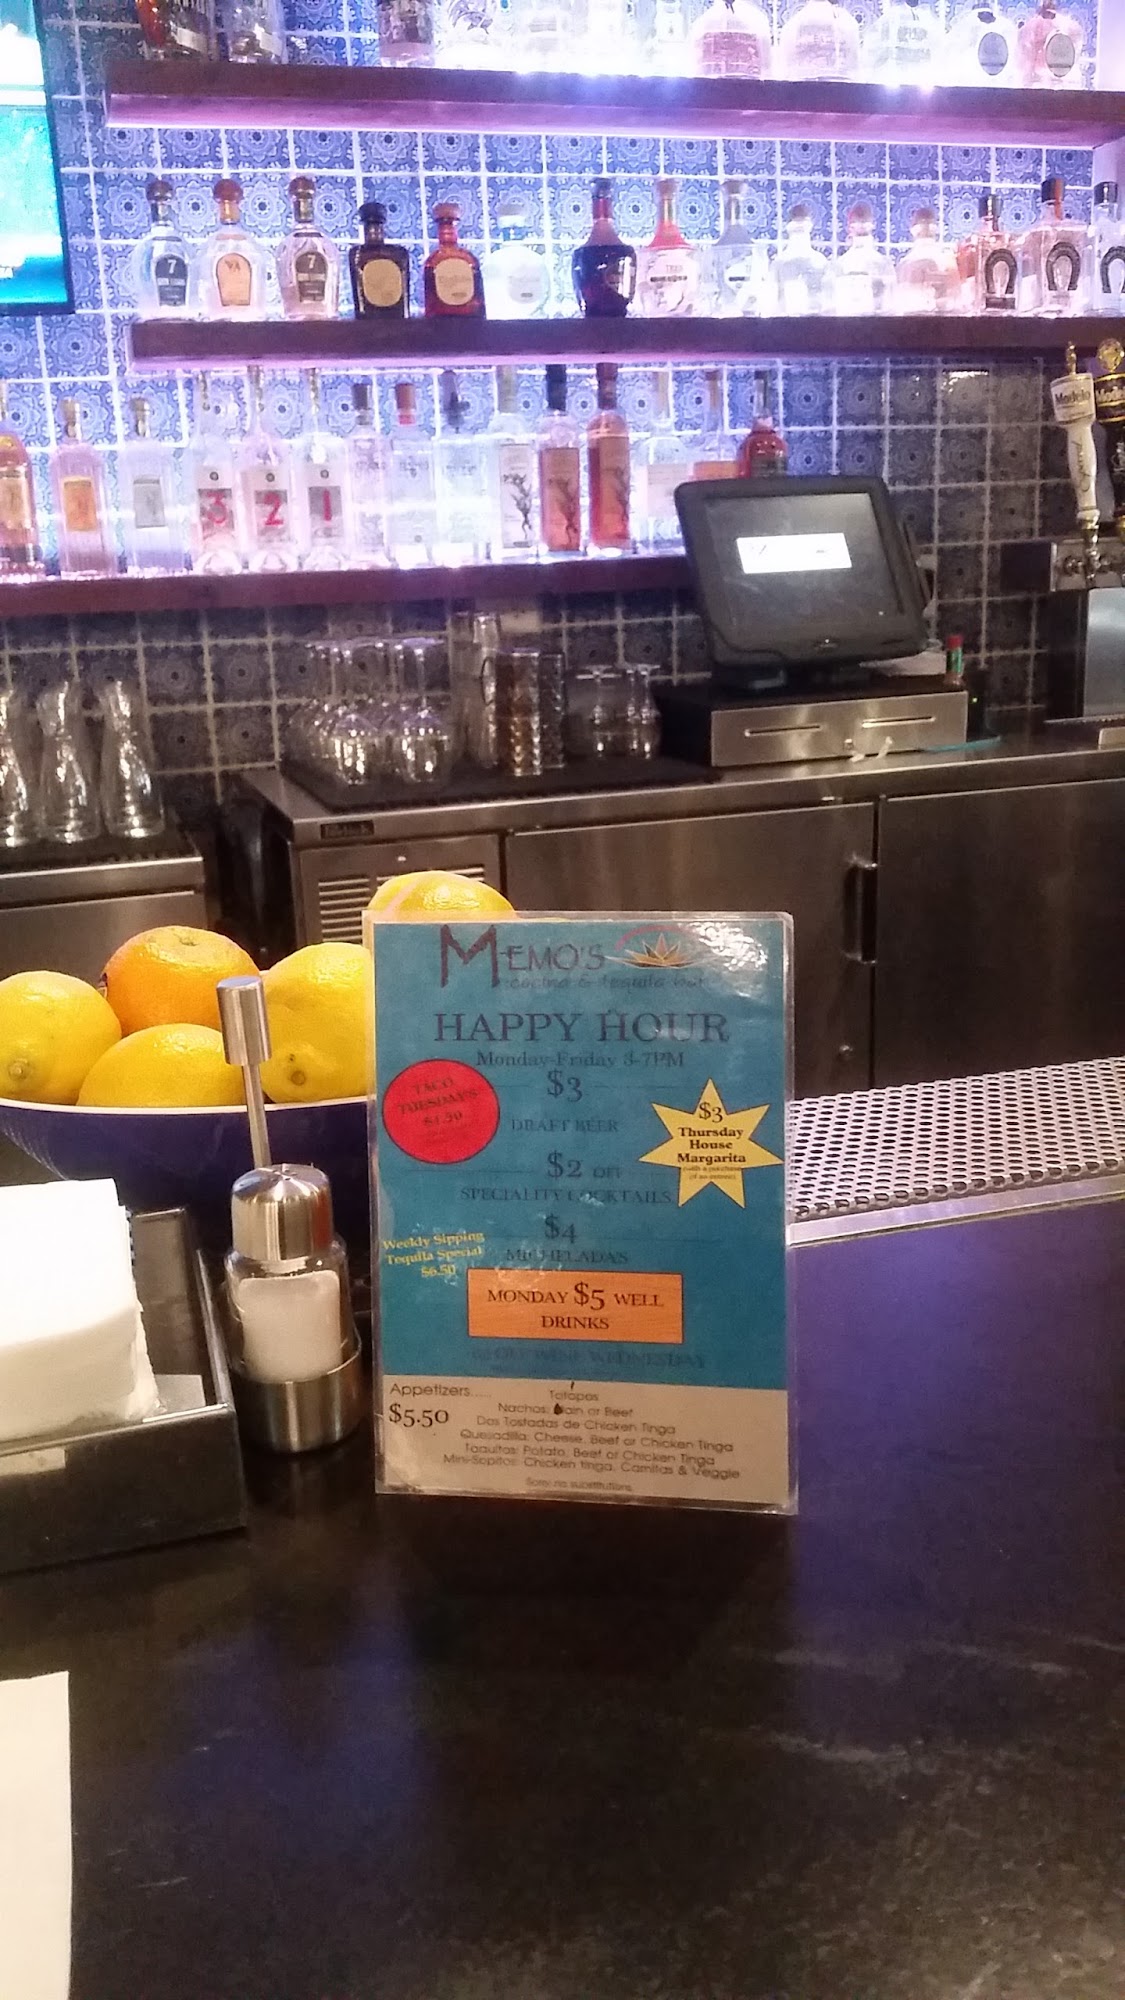 7
7
3
2
1
Modelo
Modelo
MEMO'S
cocina & tequila bar
HAPPY HOUR
Monday-Friday 3-7PM
$3
DRAFT BEER
TACO
TUESDAY'S
$1.50
$3
Thursday
House
Margarita
(with a purchase
of an entree)
$2 OFF
SPECIALITY COCKTAILS
$4
MICHELADA'S
Weekly Sipping
Tequila Special
$6.50
MONDAY $5 WELL
DRINKS
OFF WINE WEDNESDAY
Appetizers.....
$5.50
Totopos
Nachos: Plain or Beef
Dos Tostadas de Chicken Tinga
Quesadilla: Cheese, Beef or Chicken Tinga
Taquitos: Potato, Beef or Chicken Tinga
Mini-Sopitos: Chicken tinga, Carnitas & Veggie
Sorry no substitutions